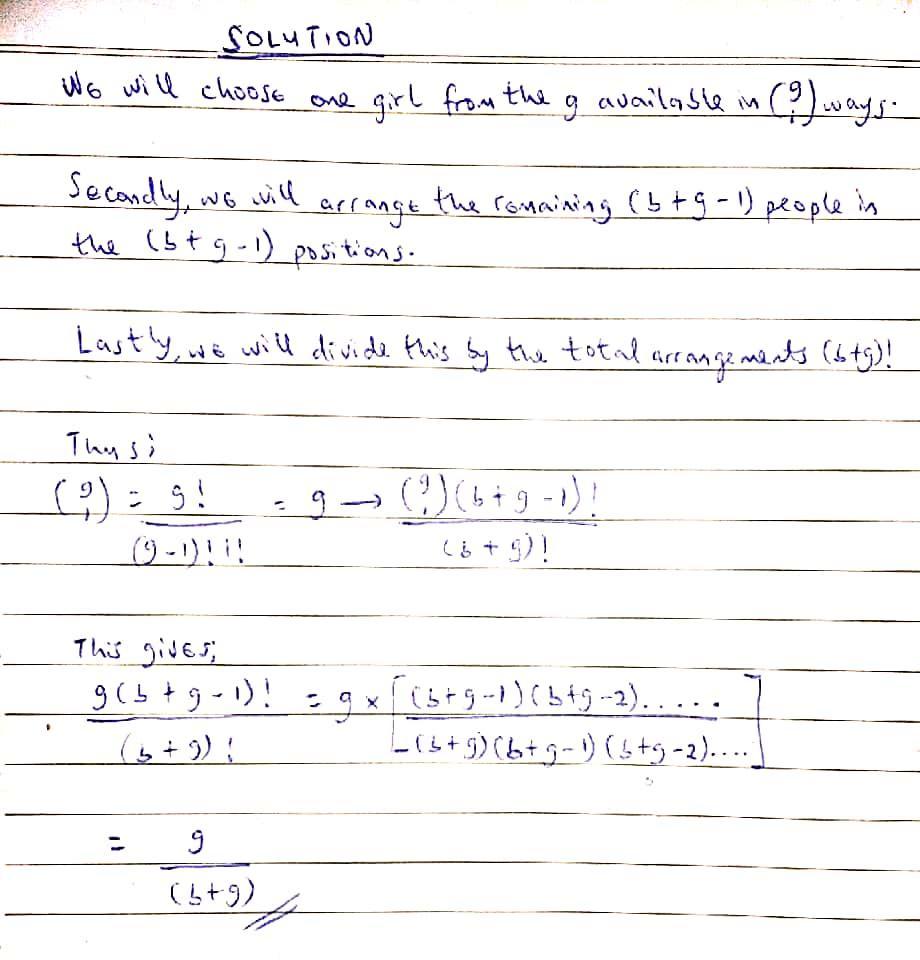 SOLUTION
We will choose one girl from the g available in (g 1) ways.
Secondly, we will arrange the remaining (b+g-1) people in
the (b+g-1) positions.
Lastly, we will divide this by the total arrangements (b+g)!
Thus;
(g 1) = g! / (g-1)! 1! = g → (g 1)(b+g-1)! / (b+g)!
This gives;
g(b+g-1)! / (b+g)! = g × [(b+g-1)(b+g-2)..... / (b+g)(b+g-1)(b+g-2)....]
= g / (b+g)